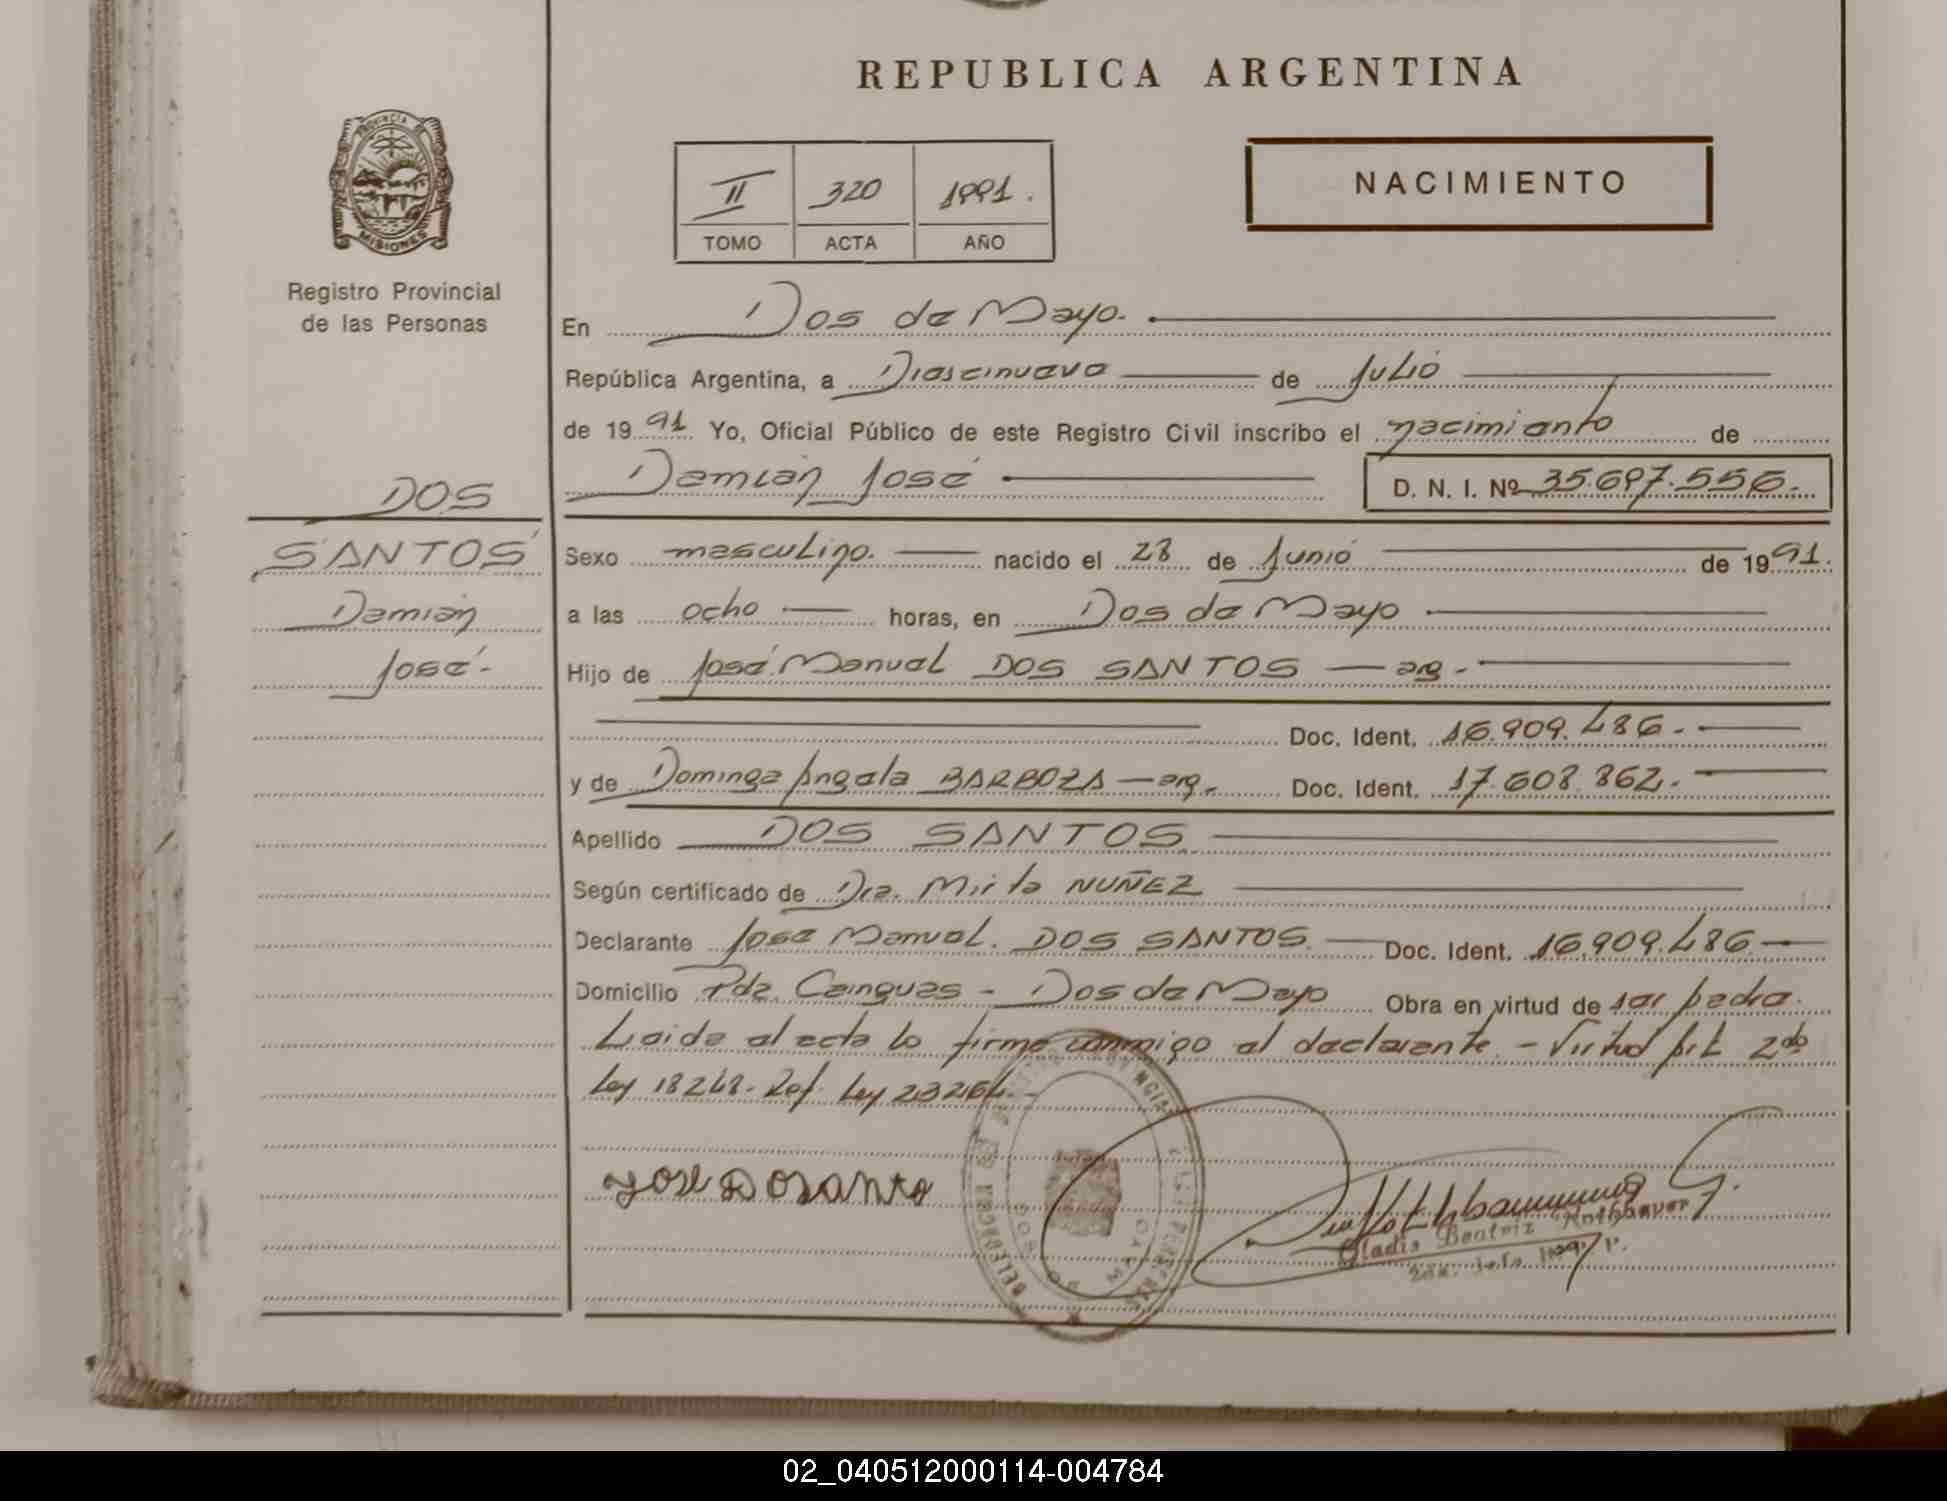 REPUBLICA ARGENTINA
PROVINCIA DE
MISIONES
Registro Provincial
de las Personas
II 320 1991.
TOMO ACTA AÑO
NACIMIENTO
DOS
SANTOS
Damián
José.-
En Dos de Mayo.
República Argentina, a Diescinueve de Julio
de 1991 Yo, Oficial Público de este Registro Civil inscribo el nacimiento de
Damián José D. N. I. Nº 35.697.556.-
Sexo masculino. nacido el 28 de Junio de 1991.
a las ocho horas, en Dos de Mayo
Hijo de José Manuel DOS SANTOS — arg.-
Doc. Ident. 16.909.486.-
y de Dominga Angela BARBOZA — arg.- Doc. Ident. 17.608.862.-
Apellido DOS SANTOS
Según certificado de Dra. Mirta NUÑEZ
Declarante José Manuel. DOS SANTOS. Doc. Ident. 16.909.486.-
Domicilio Pda. Cainguas - Dos de Mayo Obra en virtud de ser padre.
Leida el acta la firma conmigo el declarante - Virtud 2do
Ley 18248. Ref. Ley 23264.-
José Dosanto
Gladis Beatriz Rothbauer
02_040512000114-004784